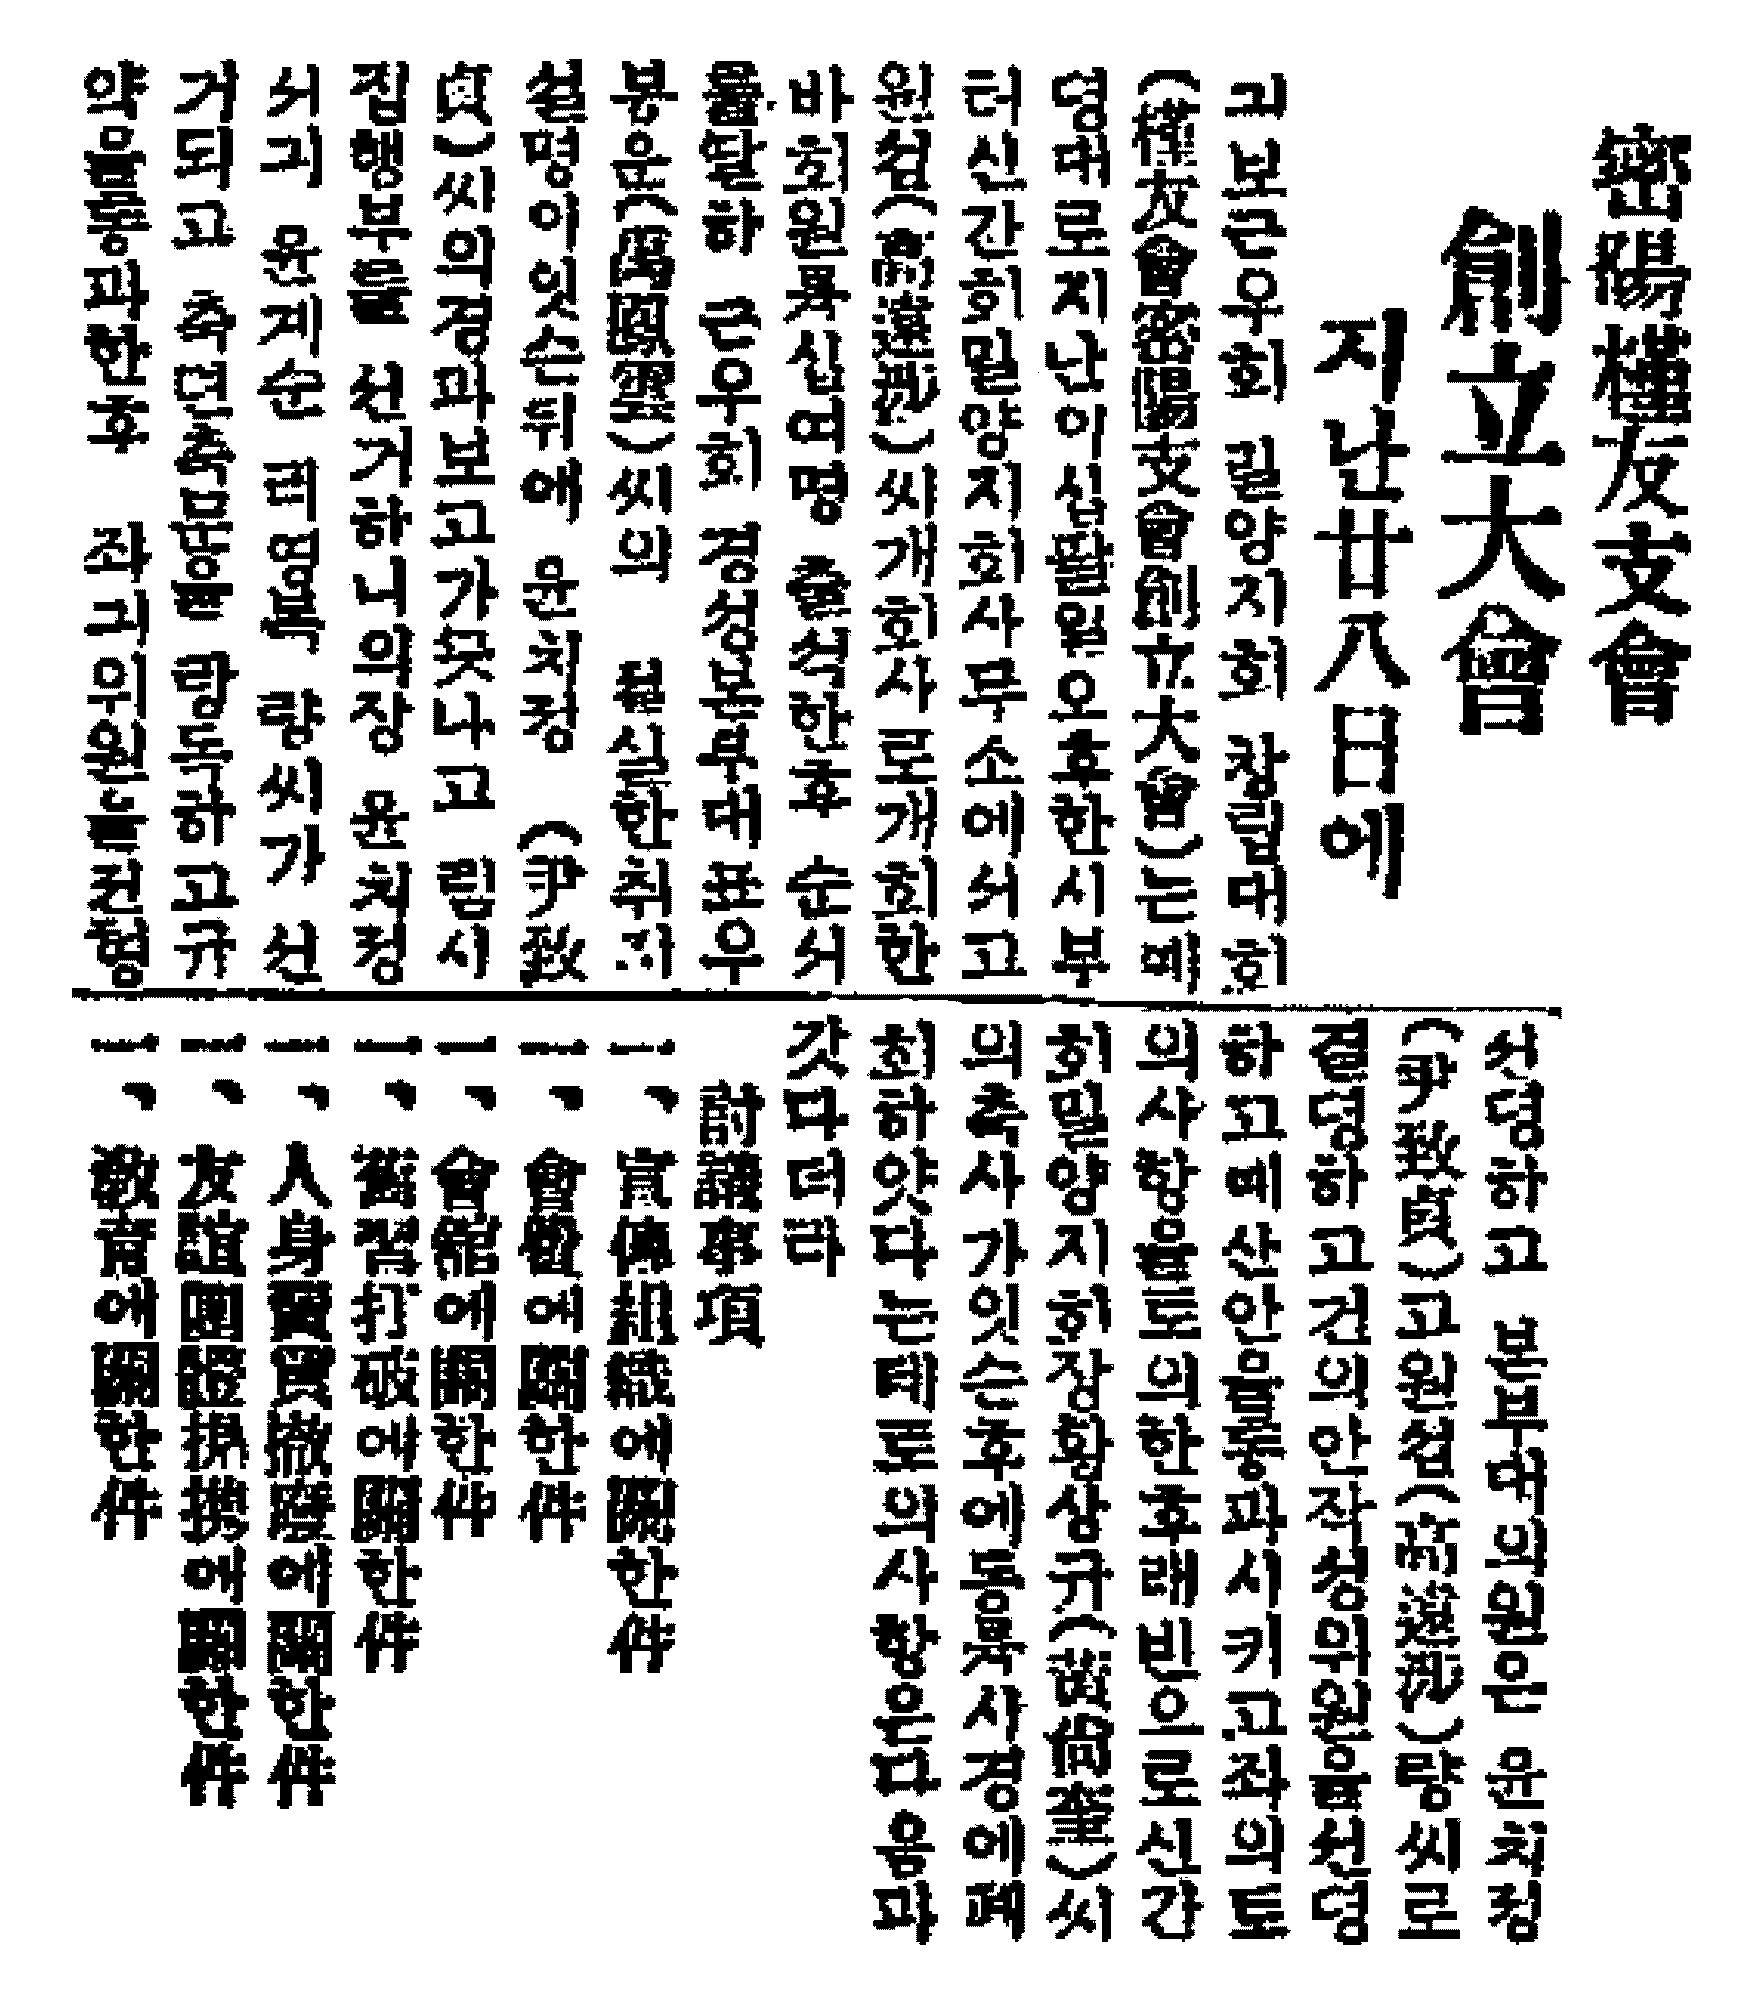 密陽槿友支會
創立大會
지난廿八日에
긔보=근우회 밀양지회 창립대회
(槿友會密陽支會創立大會)는 예
뎡대로지난이십팔일오후한시부
터신간회밀양지회사무소에서고
원섭( )씨개회사로개회한
바회원륙십여명 출석한후 순서
를딸하 근우회 경성본부대표우
봉운(禹鳳雲)씨의 열심한취지
설명이잇슨뒤에 윤치정 (尹致
貞)씨의경과보고가끗나고 림시
집행부를 선거하니의장 윤치정
서긔 윤계순 뎍임록 량씨가 선
거되고 축뎐축문등을 랑독하고규
약을통과한후 집긔위원을전형
선뎡하고 본부대의원은 윤치정
(尹致貞)고원섭( )량씨로
결뎡하고건의안작성위원을선뎡
하고예산안을통과시키고좌의토
의사항을토의한후래빈으로신간
회밀양지회장황상규(黃尙奎)씨
의축사가잇슨후에동륙시경에폐
회하얏다는데토의사항은다음과
갓다더라
討議事項
一、宣傳組織에關한件
一、會員에關한件
一、會館에關한件
一、舊習打破에關한件
一、人身賣買撤廢에關한件
一、友誼團體提携에關한件
一、敎育에關한件